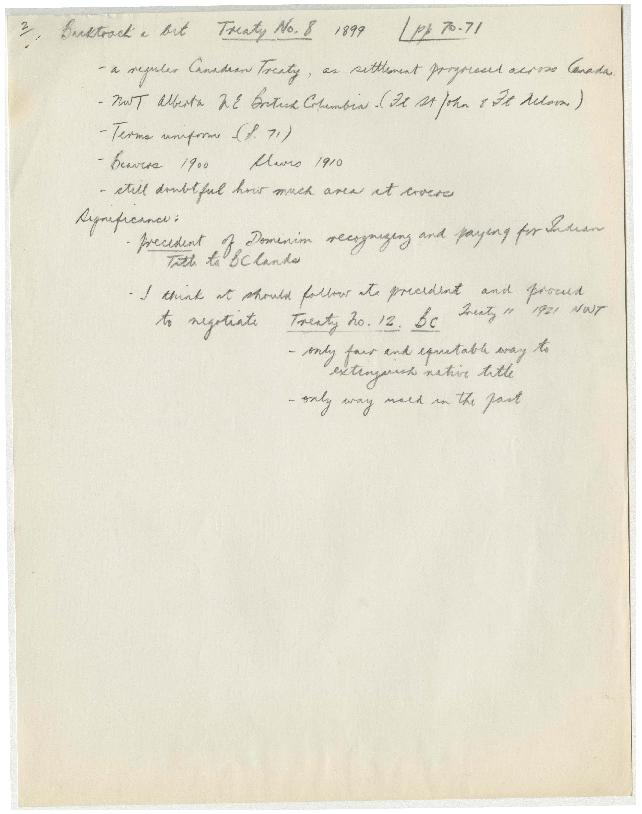 2/. Backtrack a bit Treaty No. 8 1899 pp 70-71
- a regular Canadian Treaty, as settlement progressed across Canada.
- NWT Alberta N E British Columbia - (Ft St John & Ft Nelson)
- Terms uniform - (p. 71)
- Beavers 1900 Slaves 1910
- still doubtful how much area it covers
Significance:
- precedent of Dominion recognizing and paying for Indian
Title to BC lands
- I think it should follow its precedent and proceed
to negotiate Treaty No. 12. BC Treaty 11 1921 NWT
- only fair and equitable way to
extinguish native title
- only way used in the past